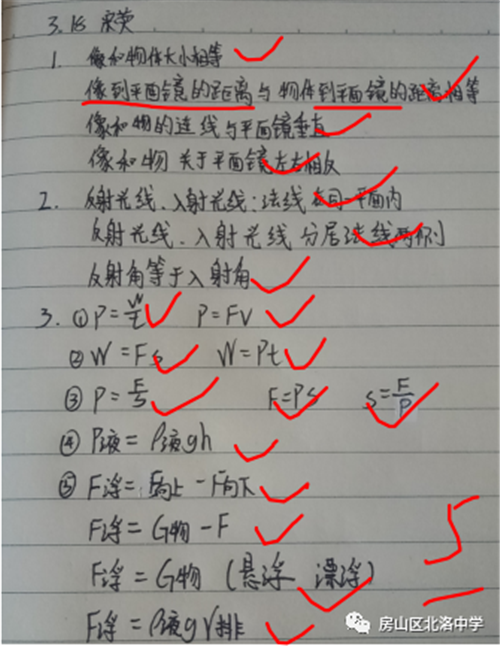 3.18 宋荧
1. 像和物体大小相等
像到平面镜的距离与物体到平面镜的距离相等
像和物的连线与平面镜垂直
像和物关于平面镜左右相反
2. 反射光线、入射光线:法线在同一平面内
反射光线、入射光线分居法线两侧
反射角等于入射角
3. ①P=W/t P=Fv
②W=Fs W=Pt
③P=F/S F=PS S=F/P
④P液=ρ液gh
⑤F浮=F向上-F向下
F浮=G物-F
F浮=G物(悬浮、漂浮)
F浮=ρ液gV排
5
房山区北洛中学